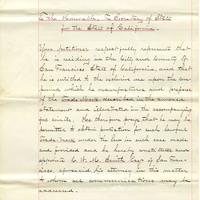 To the Honorable, the Secretary of State
for the State of California.
Your petitioner respectfully represents that
he is a resident in the City and County of
San Francisco State of California and that
he is entitled to the exclusive use upon the
which he manufactures and
of the Trade Mark described in the annexed
statement and illustrated in the accompanying
He therefore prays that he may be
permitted to obtain protection for such lawful
trade mark under the law in such case made
and provided and he hereby constitutes and
appoints W. M. Smith Esq of San Fran-
cisco, his attorney in this matter
to whom all communications may be
addressed.